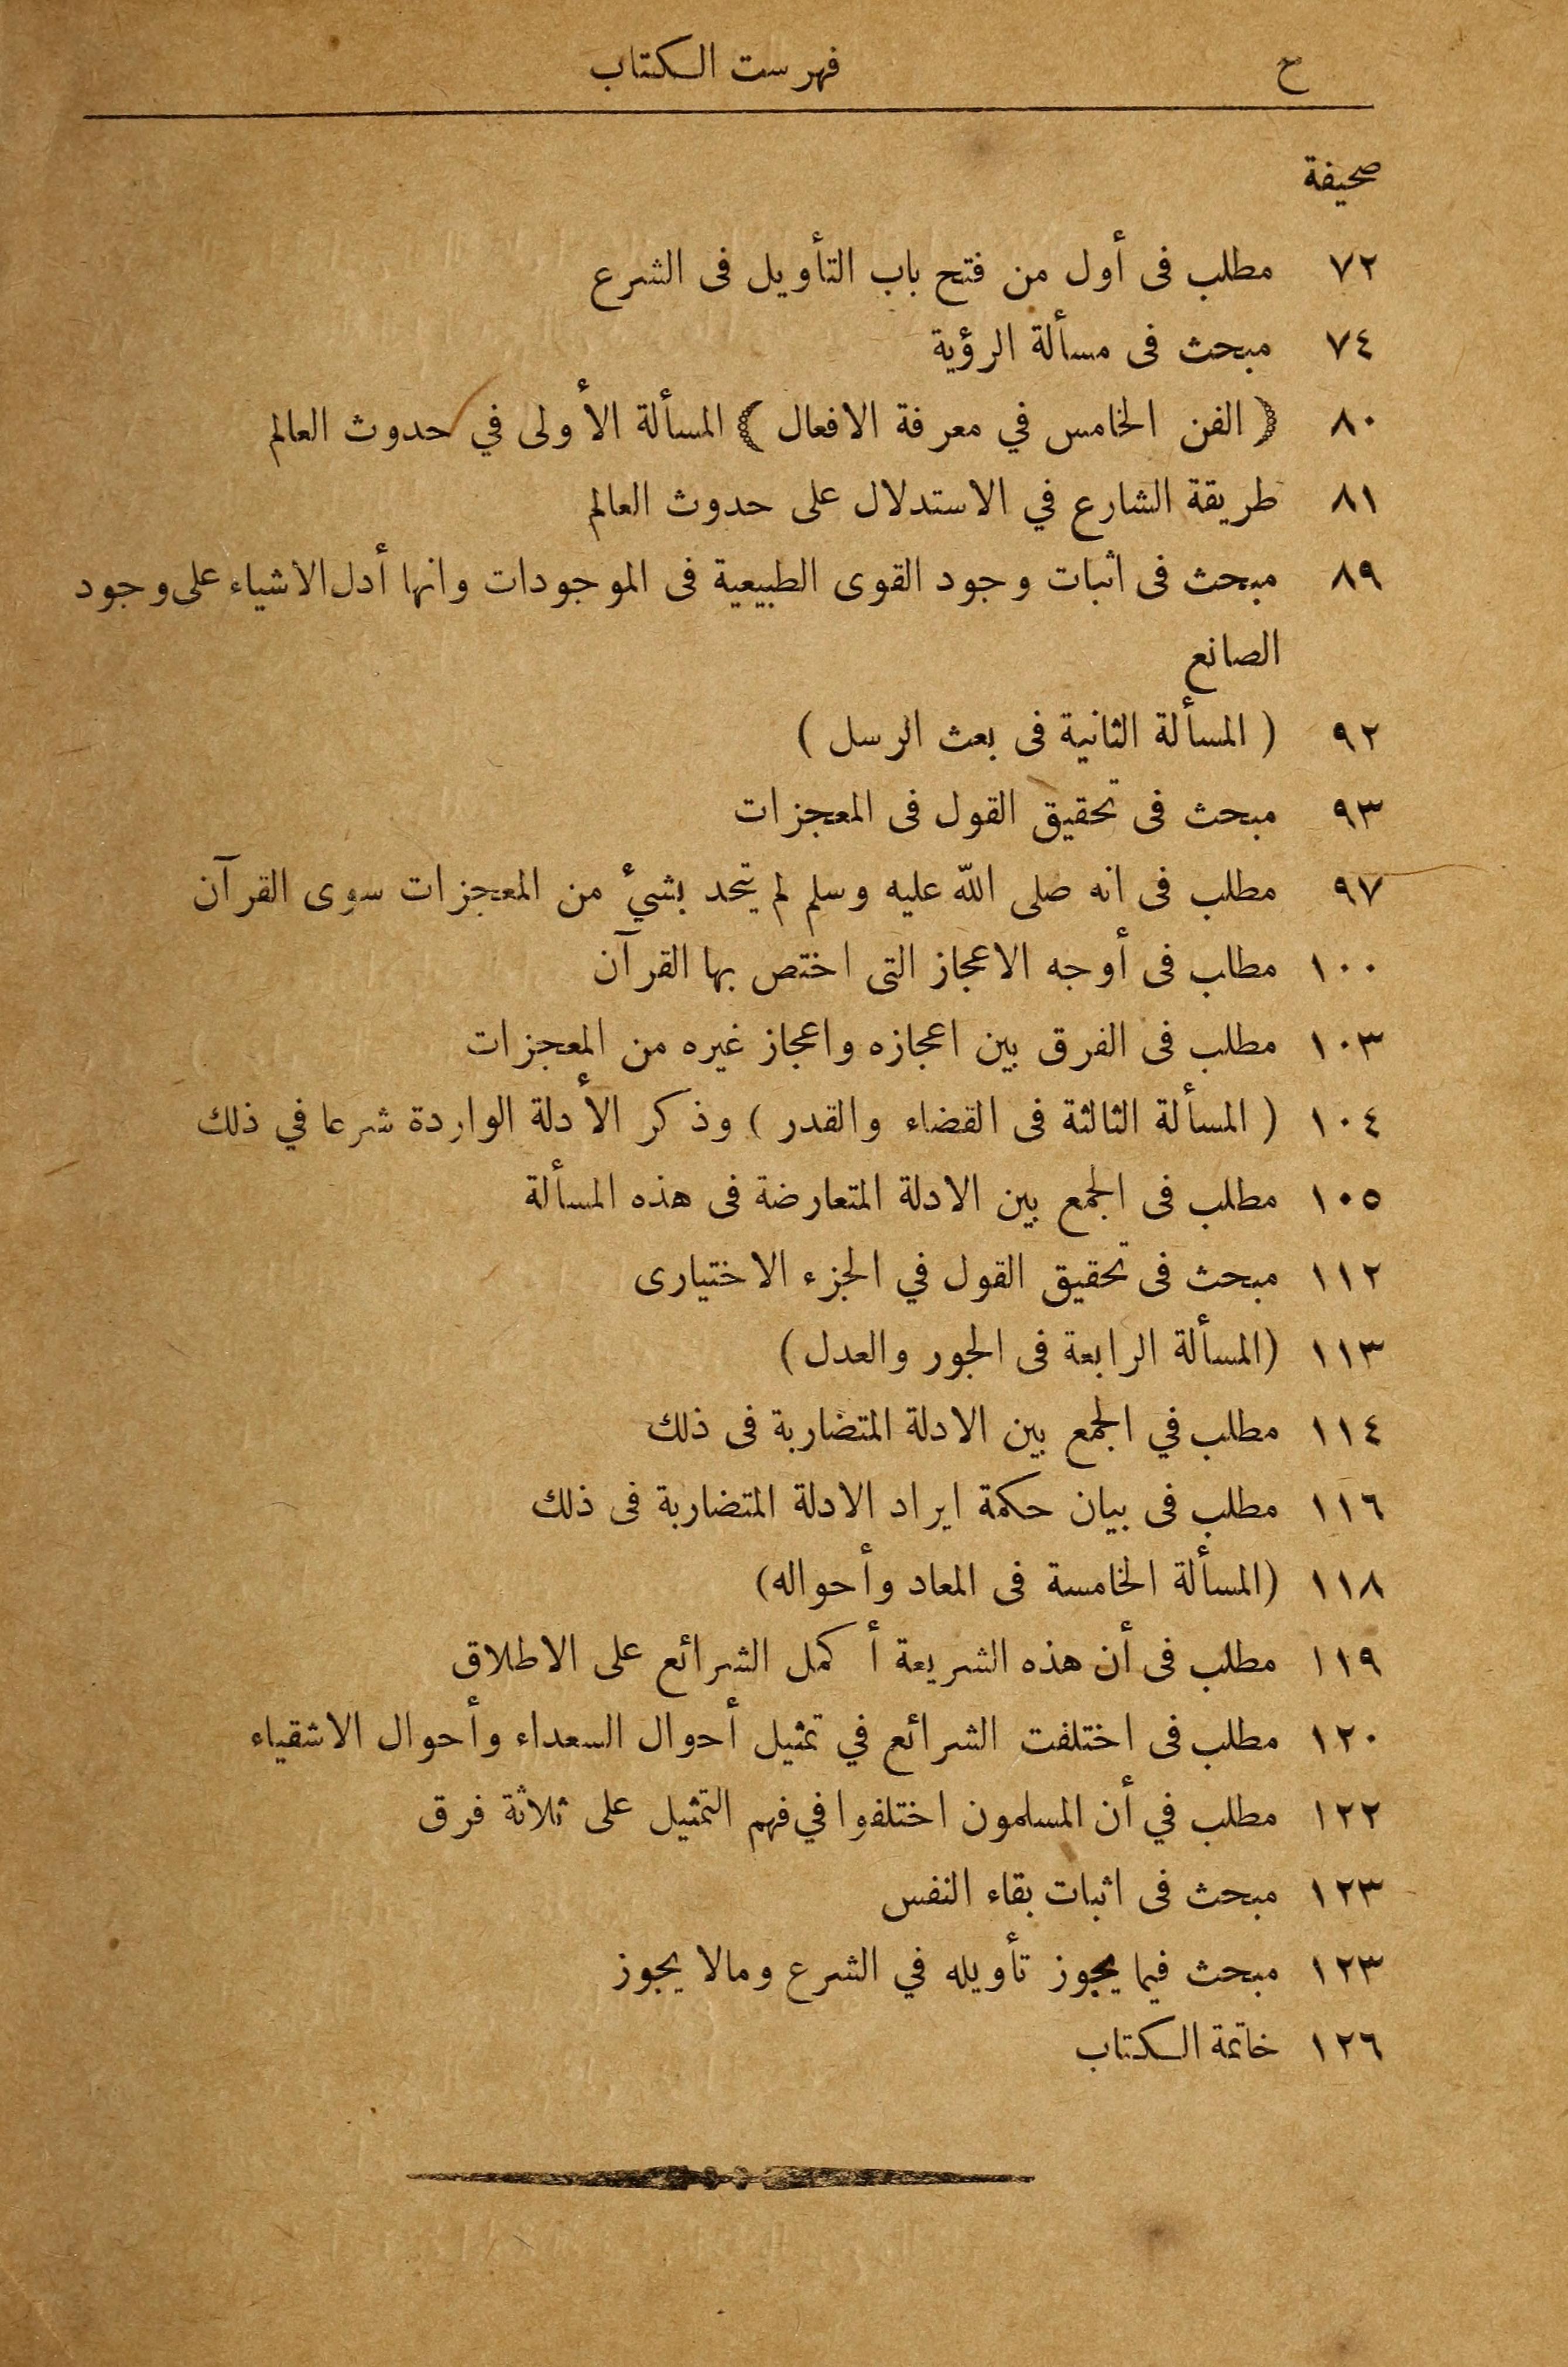 ح
فهرست الكتاب
صحيفة
٧٢ مطلب فى أول من فتح باب التأويل فى الشرع
٧٤ مبحث فى مسألة الرؤية
٨٠ ( الفن الخامس في معرفة الافعال ) المسألة الأولى في حدوث العالم
٨١ طريقة الشارع في الاستدلال على حدوث العالم
٨٩ مبحث فى اثبات وجود القوى الطبيعية فى الموجودات وانها أدل الاشياء على وجود
الصانع
٩٢ ( المسألة الثانية فى بعث الرسل )
٩٣ مبحث فى تحقيق القول فى المعجزات
٩٧ مطلب فى انه صلى الله عليه وسلم لم يتحد بشئ من المعجزات سوى القرآن
١٠٠ مطلب فى أوجه الاعجاز التى اختص بها القرآن
١٠٣ مطلب فى الفرق بين اعجازه واعجاز غيره من المعجزات
١٠٤ ( المسألة الثالثة فى القضاء والقدر ) وذكر الأدلة الواردة شرعا في ذلك
١٠٥ مطلب فى الجمع بين الادلة المتعارضة فى هذه المسألة
١١٢ مبحث فى تحقيق القول في الجزء الاختيارى
١١٣ (المسألة الرابعة فى الجور والعدل )
١١٤ مطلب في الجمع بين الادلة المتضاربة فى ذلك
١١٦ مطلب فى بيان حكمة ايراد الادلة المتضاربة فى ذلك
١١٨ (المسألة الخامسة فى المعاد وأحواله)
١١٩ مطلب فى أن هذه الشريعة أكمل الشرائع على الاطلاق
١٢٠ مطلب فى اختلفت الشرائع في تمثيل أحوال السعداء وأحوال الاشقياء
١٢٢ مطلب في أن المسلمون اختلفوا في فهم التمثيل على ثلاثة فرق
١٢٣ مبحث فى اثبات بقاء النفس
١٢٣ مبحث فيما يجوز تأويله في الشرع ومالا يجوز
١٢٦ خاتمة الكتاب